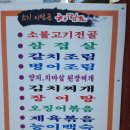 소불고기전골
삼겹살
갈치조림
병어조림
양지,차마살 된장찌개
김치찌개
장어탕
오징어볶음
제육볶음